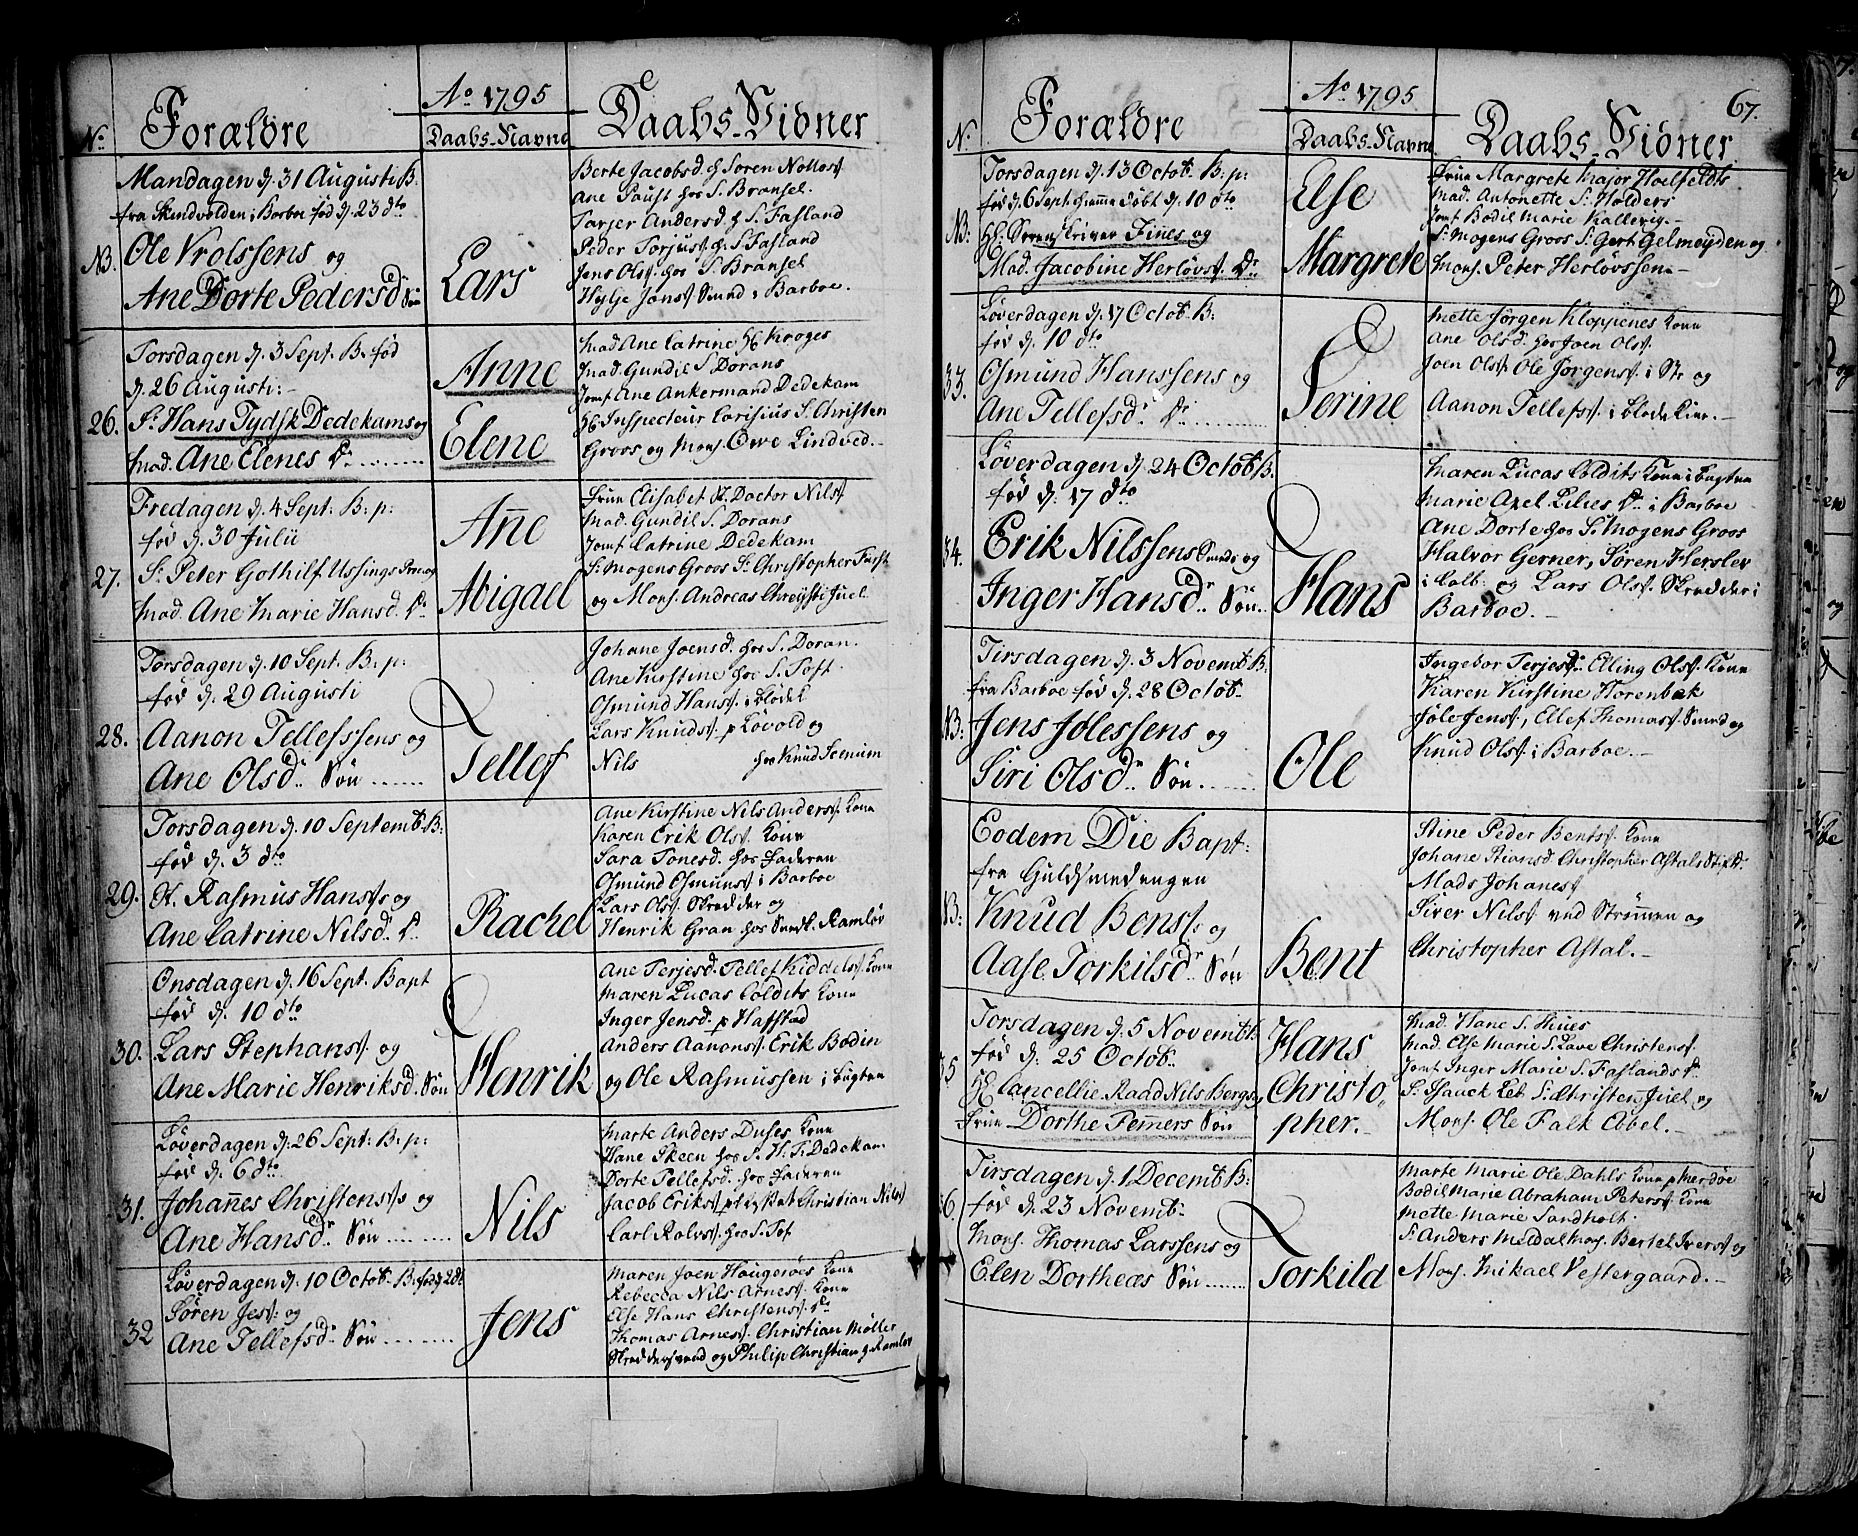 Ao 1795
No. Forældre Daabs-Navne Daabs-Vidner
Mandagen d. 31 Augusti B.
fra Skindvolden i Barboe fød d. 23 dto
NB. Ole Vrolssens og
Ane Dorte Pedersdr. Søn
Lars
Berte Jacobsd. h Soren Nottos.
Ane Paust hos S. Bransel.
Tarjer Andersd. h S. Fasland
Peder Torjuss. h S. Fasland
Jens Ols. hos S. Bransel
Hylje Jons. Smed i Barboe.
Torsdagen d. 3 Sept. B. fød
d. 26 Augusti:-
26. Sr. Hans Tydsk Dedekams og
Mad. Ane Elenes Dr.
Anne
Elene
Mad. Ane Catrine Hr. Kroges
Mad. Gundil S. Dorans
Jomf. Ane Ankermand Dedekam
Hr. Inspecteur Carisius S. Christen
Groos og Mons. Owe Lindved.-
Fredagen d. 4 Sept: B. p:
fød d. 30 Julii
27. Sr. Peter Gothilf Ussings Proc. og
Mad. Ane Marie Hansd. Dr.
Añe
Abigael
Frue Elisabet Doctor Nils.
Mad. Gundil S. Dorans
Jomf. Catrine Dedekam
Sr. Mogens Groos Sr. Christopher Furst
og Mons. Andreas Chreysti Juel.
Torsdagen d. 10 Sept. B. p:
fød d. 29 Augusti
28. Aanon Tellefssens og
Ane Olsdr. Søn
Tellef
Johane Joensd. hos S. Doran.
Ane Kirstine hos S. Toft.
Osmund Hans. i Blödek.
Lars Knuds. p Lövold og
Nils hos Knud Stenium
Torsdagen d. 10 Septemb. B:
fød d. 3 dto
29. Rasmus Hans. og
Ane Catrine Nilsd. Dr.
Rachel
Ane Kirstine Nils Anders. Kone
Karen Erik Ols. Kone
Sara Tonesd. hos Faderen
Osmund Osmuns. i Barboe
Lars Ols. Skredder og
Henrik Gran hos Ramlöv
Onsdagen d. 16 Sept. Bapt
fød d. 10 dto
30. Lars Stephans. og
Ane Marie Henriksd. Søn
Henrik
Ane Terjesd. Tellef Kiddels. Kone
Maren Lucas Coldits Kone
Inger Jensd. p Hafstad
Anders Aanons. Erik Bodin
og Ole Rasmussen i bugten
Løverdagen d. 26 Sept: B. p:
fød d. 6 dto
31. Johañes Christens. og
Ane Hansdr. Søn
Nils
Marte Anders Duses Kone
Hane Skeen hos S. H. T. Dedekam
Dorte Tellefsd. hos Faderen
Jacob Eriks. Christian Nils.
Carl Rolvs. hos S. Tof.
Løverdagen d. 10 Octob. B. fød d. 2 do
32 Søren Jess. og
Ane Tellefsdr. Søn
Jens
Maren Joen Haugeröes Kone
Rebecca Nils Arnes. Kone
Else Hans Christens. Dr.
Thomas Arnes. Christian Møller
Skreddersvend og Philip Christian Ramlöv
Ao 1795 67.
No. Forældre Daabs-Navne Daabs-Vidner
Torsdagen d. 13 Octob. B. p:
fød d. 6 Sept. hjemme døbt d. 10 dto
NB: Hr. Sorenskriver Fines og
Mad. Jacobine Herløvs. Dr.
Else
Margrete
Frue Margrete Major Hoelfeldts
Mad. Antonette S. Holders
Jomf. Bodil Marie Kallevig.-
Sr. Mogens Groos Sr. Gert Gelmeyden og
Mons. Peter Herlövssen.-
Løverdagen d. 17 Octob. B:
fød d. 10 dto
33. Osmund Hanssens og
Ane Tellefsdr. Dr.
Serine
Mette Jörgen Kloppenes Kone
Ane Olsd. hos Joen Ols.
Joen Ols. Ole Jörgens. i Str og
Aanon Tellefs. i Blödekier.-
Løverdagen d. 24 Octob. B.
fød d. 17 dto
34. Erik Nilssens Smeds og
Inger Hansdr. Søn
Hans
Maren Lucas Coldits Kone i bugten
Marie Axel Lilies Dr. i Barboe
Ane Dorte hos Sr. Mogens Groos
Halvor Gerner, Søren Hersler
i Colb: og Lars Ols. Skredder i
Barboe.-
Tirsdagen d. 3 Novemb. B.
fra Barboe fød d. 28 Octob.
NB: Jens Jolessens og
Siri Olsdr. Søn
Ole
Ingebor Terjesdr. Elling Ols. Kone
Karen Kirstine Horenbek
Jöle Jens., Ellef Thomas. Smed og
Knud Ols. i Barboe.-
Eodem Die Bapt:
fra Guldsmedengen
NB: Knud Bens. og
Aase Torkilsdr. Søn
Bent
Stine Peder Bents. Kone
Johane Stiansd. Christopher Astals
Mads Johanes.
Siver Nils. ved Strømmen og
Christopher Astal.-
Torsdagen d. 5 Novemb. B.
fød d. 25 Octob.
35 Hr. Cancellie Raad Nils Bergs og
Frue Dorthe Femers Søn
Hans
Christo,
pher.-
Mad. Hane S. Thues
Mad. Else Marie S. Lave Christens.
Jomf. Inger Marie S. Faslands Dr.
Sr. Isauck Let S. Christen Juel og
Mons. Ole Falk Ebbel.-
Tirsdagen d. 1 Decemb. B:
36. fød d. 23 Novemb.
Mons. Thomas Larssens og
Elen Dortheæs Søn
Torkild
Marte Marie Ole Dahls Kone p Merdöe
Bodil Marie Abraham Peters. Kone
Mette Marie Sandholt.
Sr. Anders Meldal Mons. Bertel Ivers. og
Mons. Mikael Vestergaard.-